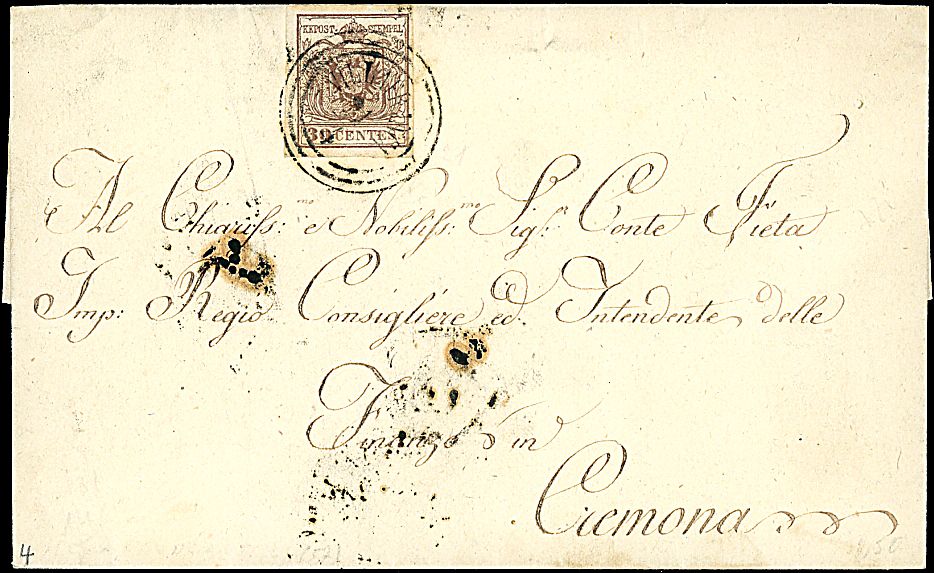 KKPOST-STEMPEL
30 CENTES.
Al Chiariss:mo e Nobiliss:mo Sigr. Conte Fieta
Imp: Regio Consigliere ed Intendente delle
Finanze in
Cremona
4